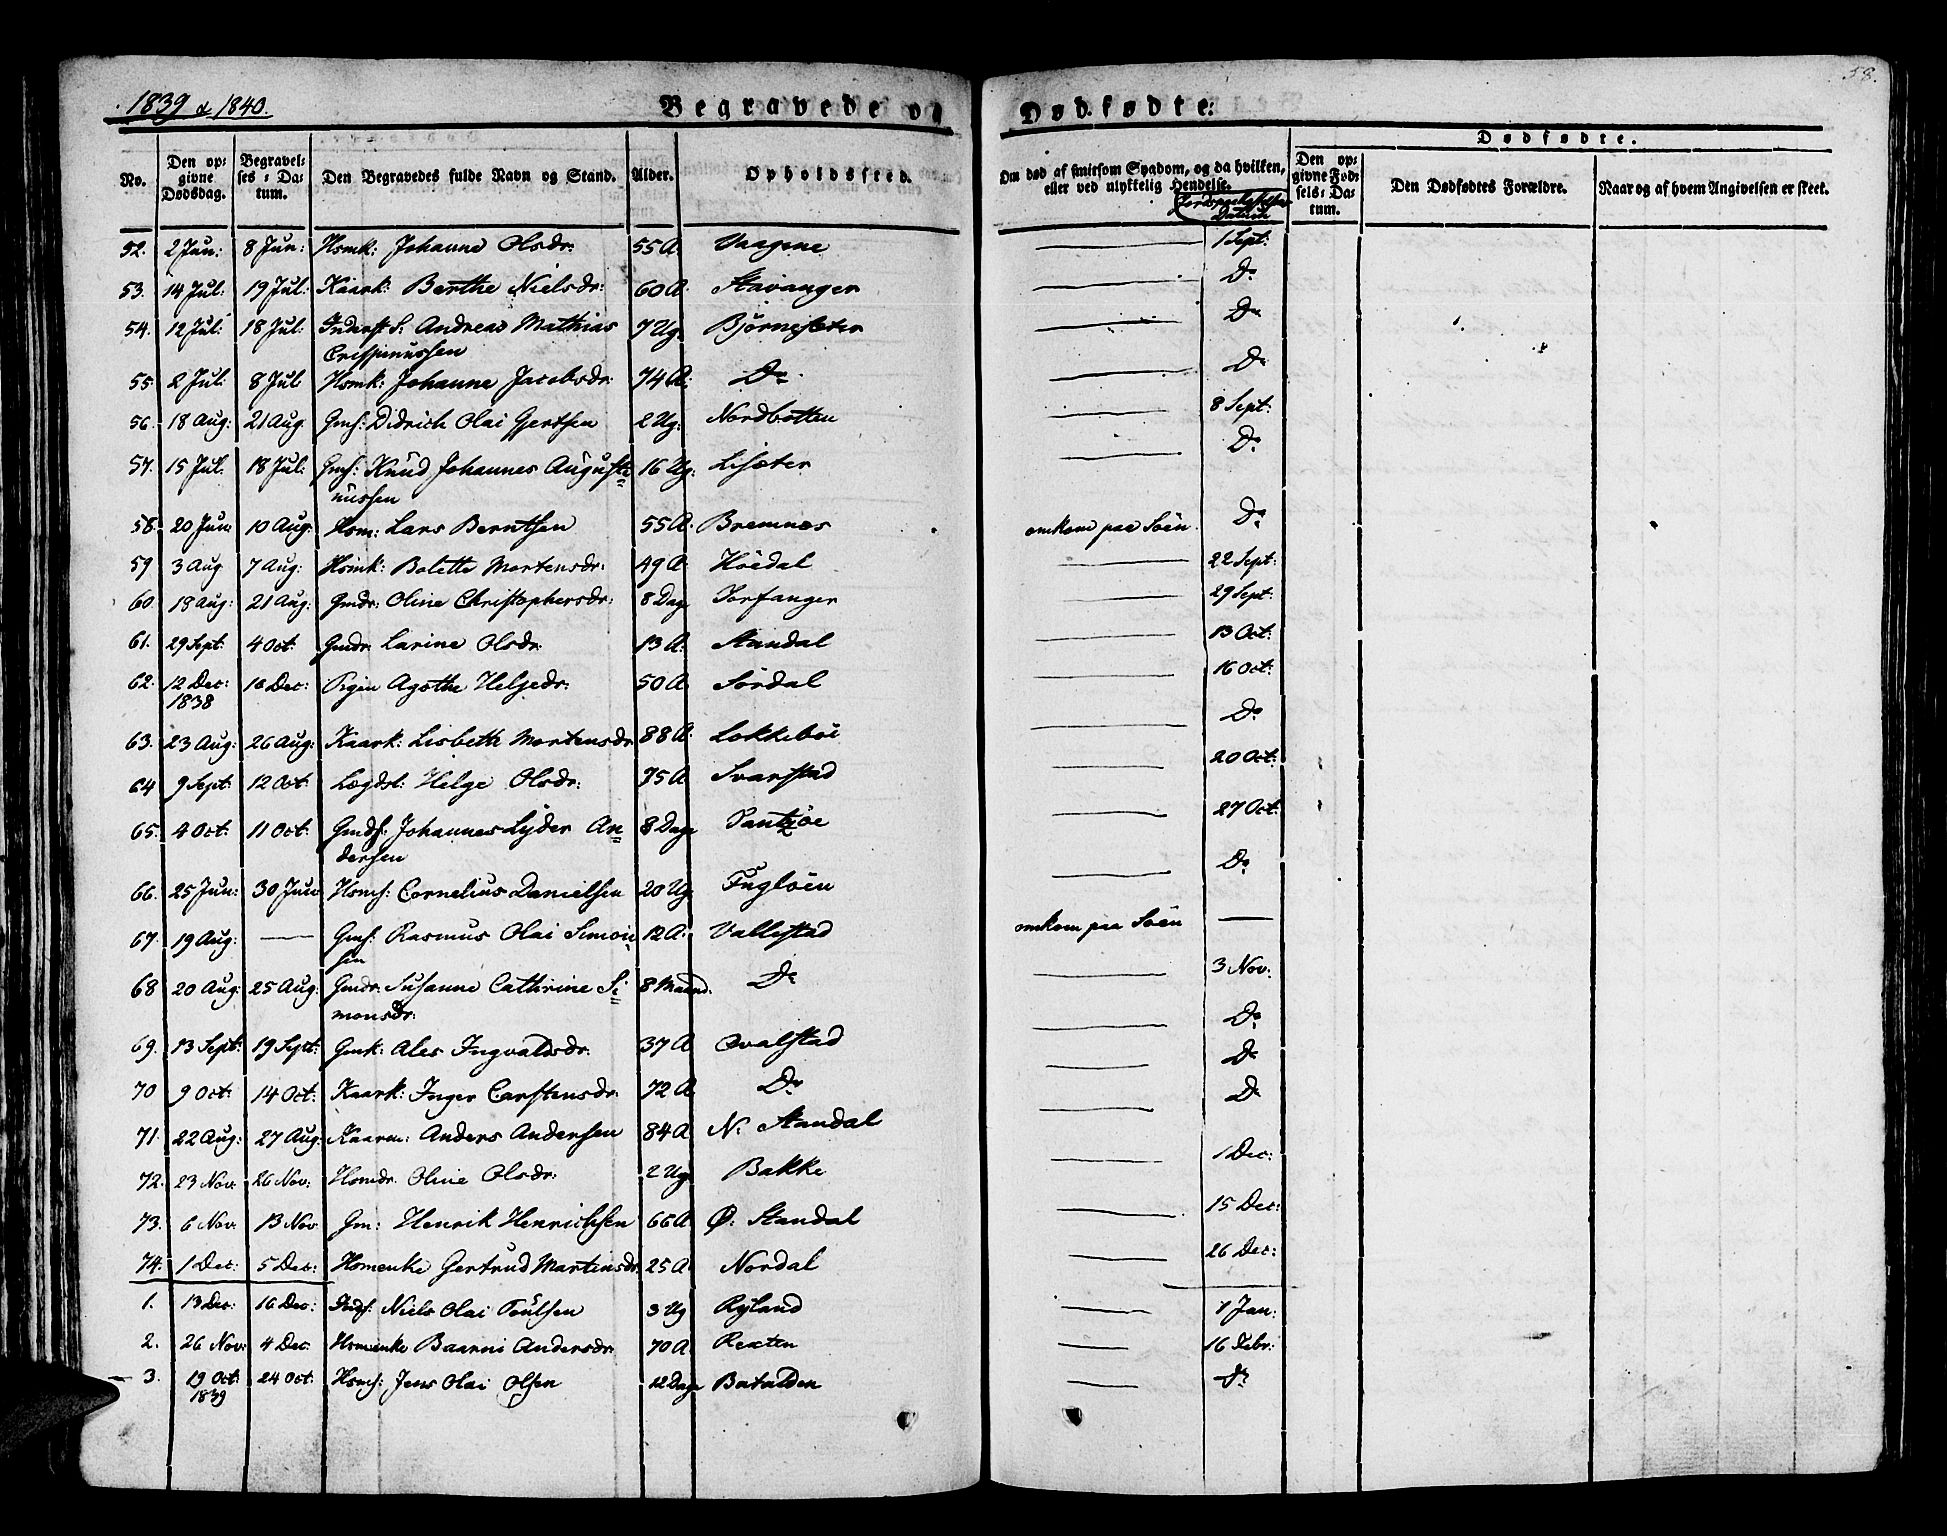 58.
1839 & 1840.
Begravede og Dødfødte:
Dødfødte.
No. Den opgivne Dødsdag. Begravelses-Datum. Den Begravedes fulde Navn og Stand. Alder. Opholdssted. Om død af smitsom Sygdom, og da hvilken, eller ved ulykkelig Hendelse. Den opgivne Fødsels-Datum. Den Dødfødtes Forældre. Naar og af hvem Angivelsen er skeet.
Datum
52. 2 Jun: 8 Jun: Hsmk: Johanne Olsdr: 55 A. Vaagene 1 Sept:
53. 14 Jul: 19 Jul: Kaark: Berthe Nielsdr: 60 A. Stavanger Do
54. 12 Jul: 18 Jul: Inderst S: Andreas Mathias 7 Ug. Bjørnesæter Do
Crispinussen
55 2 Jul: 8 Jul Hsmk: Johanne Jacobsdr: 74 A: Do Do
56. 18 Aug: 21 Aug. Gms: Didrich Olai Gertsen 2 Ug: Nordbotten 8 Sept:
57. 15 Jul. 18 Jul: Gms: Knud Johannes Augusti= 16 Ug: Lisæter Do
nussen
58. 20 Jun 10 Aug: Hsm: Lars Berntsen 55 A. Bremnes omkom paa Søen. Do
59 3 Aug 7 Aug: Hsmk: Bolette Mortensdr: 49 A. Høedal 22 Sept:
60. 18 Aug: 21 Aug: Gmdr: Oline Christophersdr: 8 Dage Torfanger 29 Sept:
61. 29 Sept: 4 Oct: Gmdr. Larine Olsdr. 13 A. Standal 13 Oct:
62. 12 Dec: 16 Dec: Pigen Agethe Helgedr: 50 A. Sørdal 16 Oct:
1838
63. 23 Aug: 26 Aug: Kaark: Lisbeth Mortensdr 88 A. Løkkebøe Do
64 9 Sept: 12 Oct: Lægdsl: Helge Olsdr: 75 A. Svarstad 20 Oct:
65. 4 Oct: 11 Oct: Gmds: Johannes Lyder An= 8 Dage 27 Oct:
dersen
66. 25 Jun: 30 Jun: Hsms: Cornelius Danielsen 20 Ug. Fugløen Do
67. 19 Aug: — Gms: Rasmus Olai Simon= 12 A. Vallestad omkom paa Søen —
sen
68 20 Aug: 25 Aug: Gmdr: Susanne Cathrine Si= 8 Maand. Do 3 Nov:
monsdr:
69. 13 Sept: 19 Sept: Gmk: Ales Ingvaldsdr: 37 A. Qvalstad Do
70 9 Oct: 14 Oct: Kaark: Inger Carstensdr: 72 A. Do Do
71. 22 Aug: 27 Aug: Kaarm: Anders Andersen 84 A. N. Standal Do
72. 23 Nov: 26 Nov: Hsmdr. Oline Olsdr: 2 Ug. Bakke 1 Dec:
73. 6 Nov. 13 Nov. Gm: Henrik Henrichsen 66 A. Ø: Standal 15 Dec:
74. 1 Dec: 5 Dec: Hsmenke Gertrud Martinsdr. 25 A. Nordal 26 Dec:
1. 13 Dec: 16 Dec: Inds: Niels Olai Poulsen 3 Ug Ryland 1 Jan:
2. 26 Nov: 4 Dec. Hsmenke Baarni Andersdr. 70 A. Rexten 16 Febr:
3. 19 Oct. 24 Oct: Hsms: Jens Olai Olsen 12 Dage Batalden Do
1839